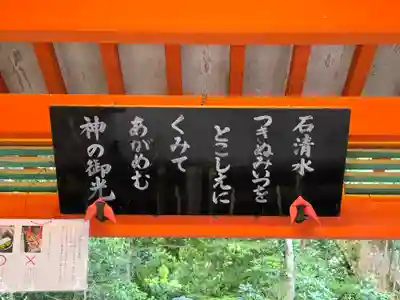 石清水
つきぬみいつを
とこしえに
くみて
あがめむ
神の御光
○ ×